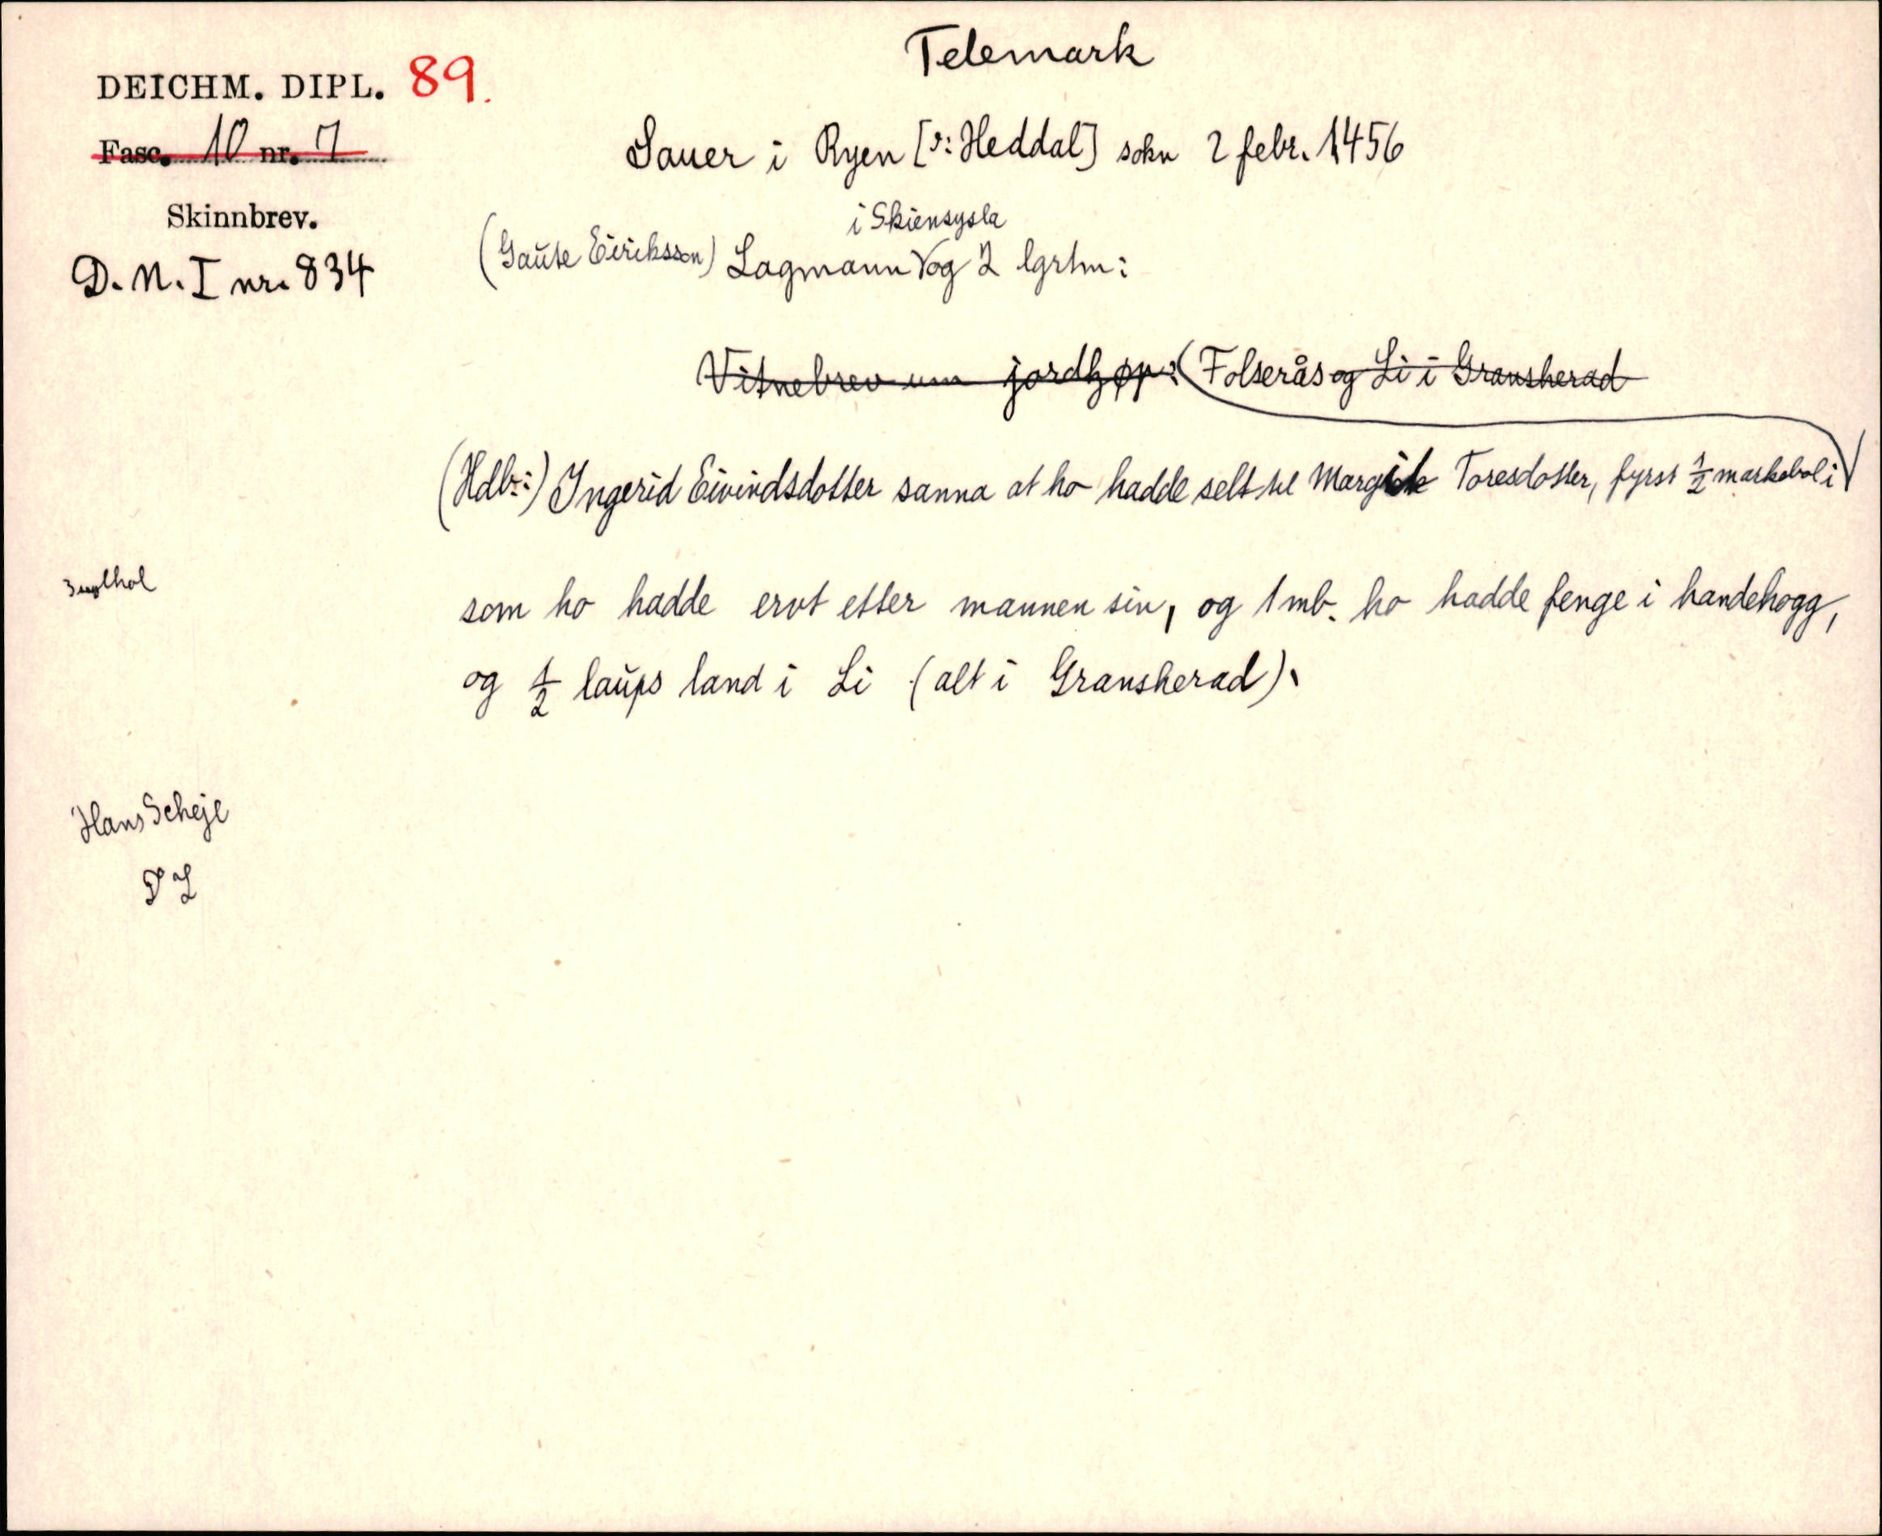 Telemark
DEICHM. DIPL. 89.
Fasc. 10 nr. 7
Sauer i Ryen [ɔ: Heddal] sokn 2 febr. 1456
Skinnbrev.
i Skiensysla
(Gaute Eiriksson) Lagmann √ og 2 lgrtm:
D. N. I nr. 834
Vitnebrev um jordkjøp: (Folserås og Li i Gransherad
(Hdlr:) Ingerid Eivindsdotter sanna at ho hadde selt til Margit Toresdotter, fyrst 1/2 markebol i √
3 seglhol
som ho hadde ervt etter mannen sin, og 1 mb. ho hadde fenge i handehogg,
og 1/2 laups land i Li (alt i Gransherad).
Hans Scheje